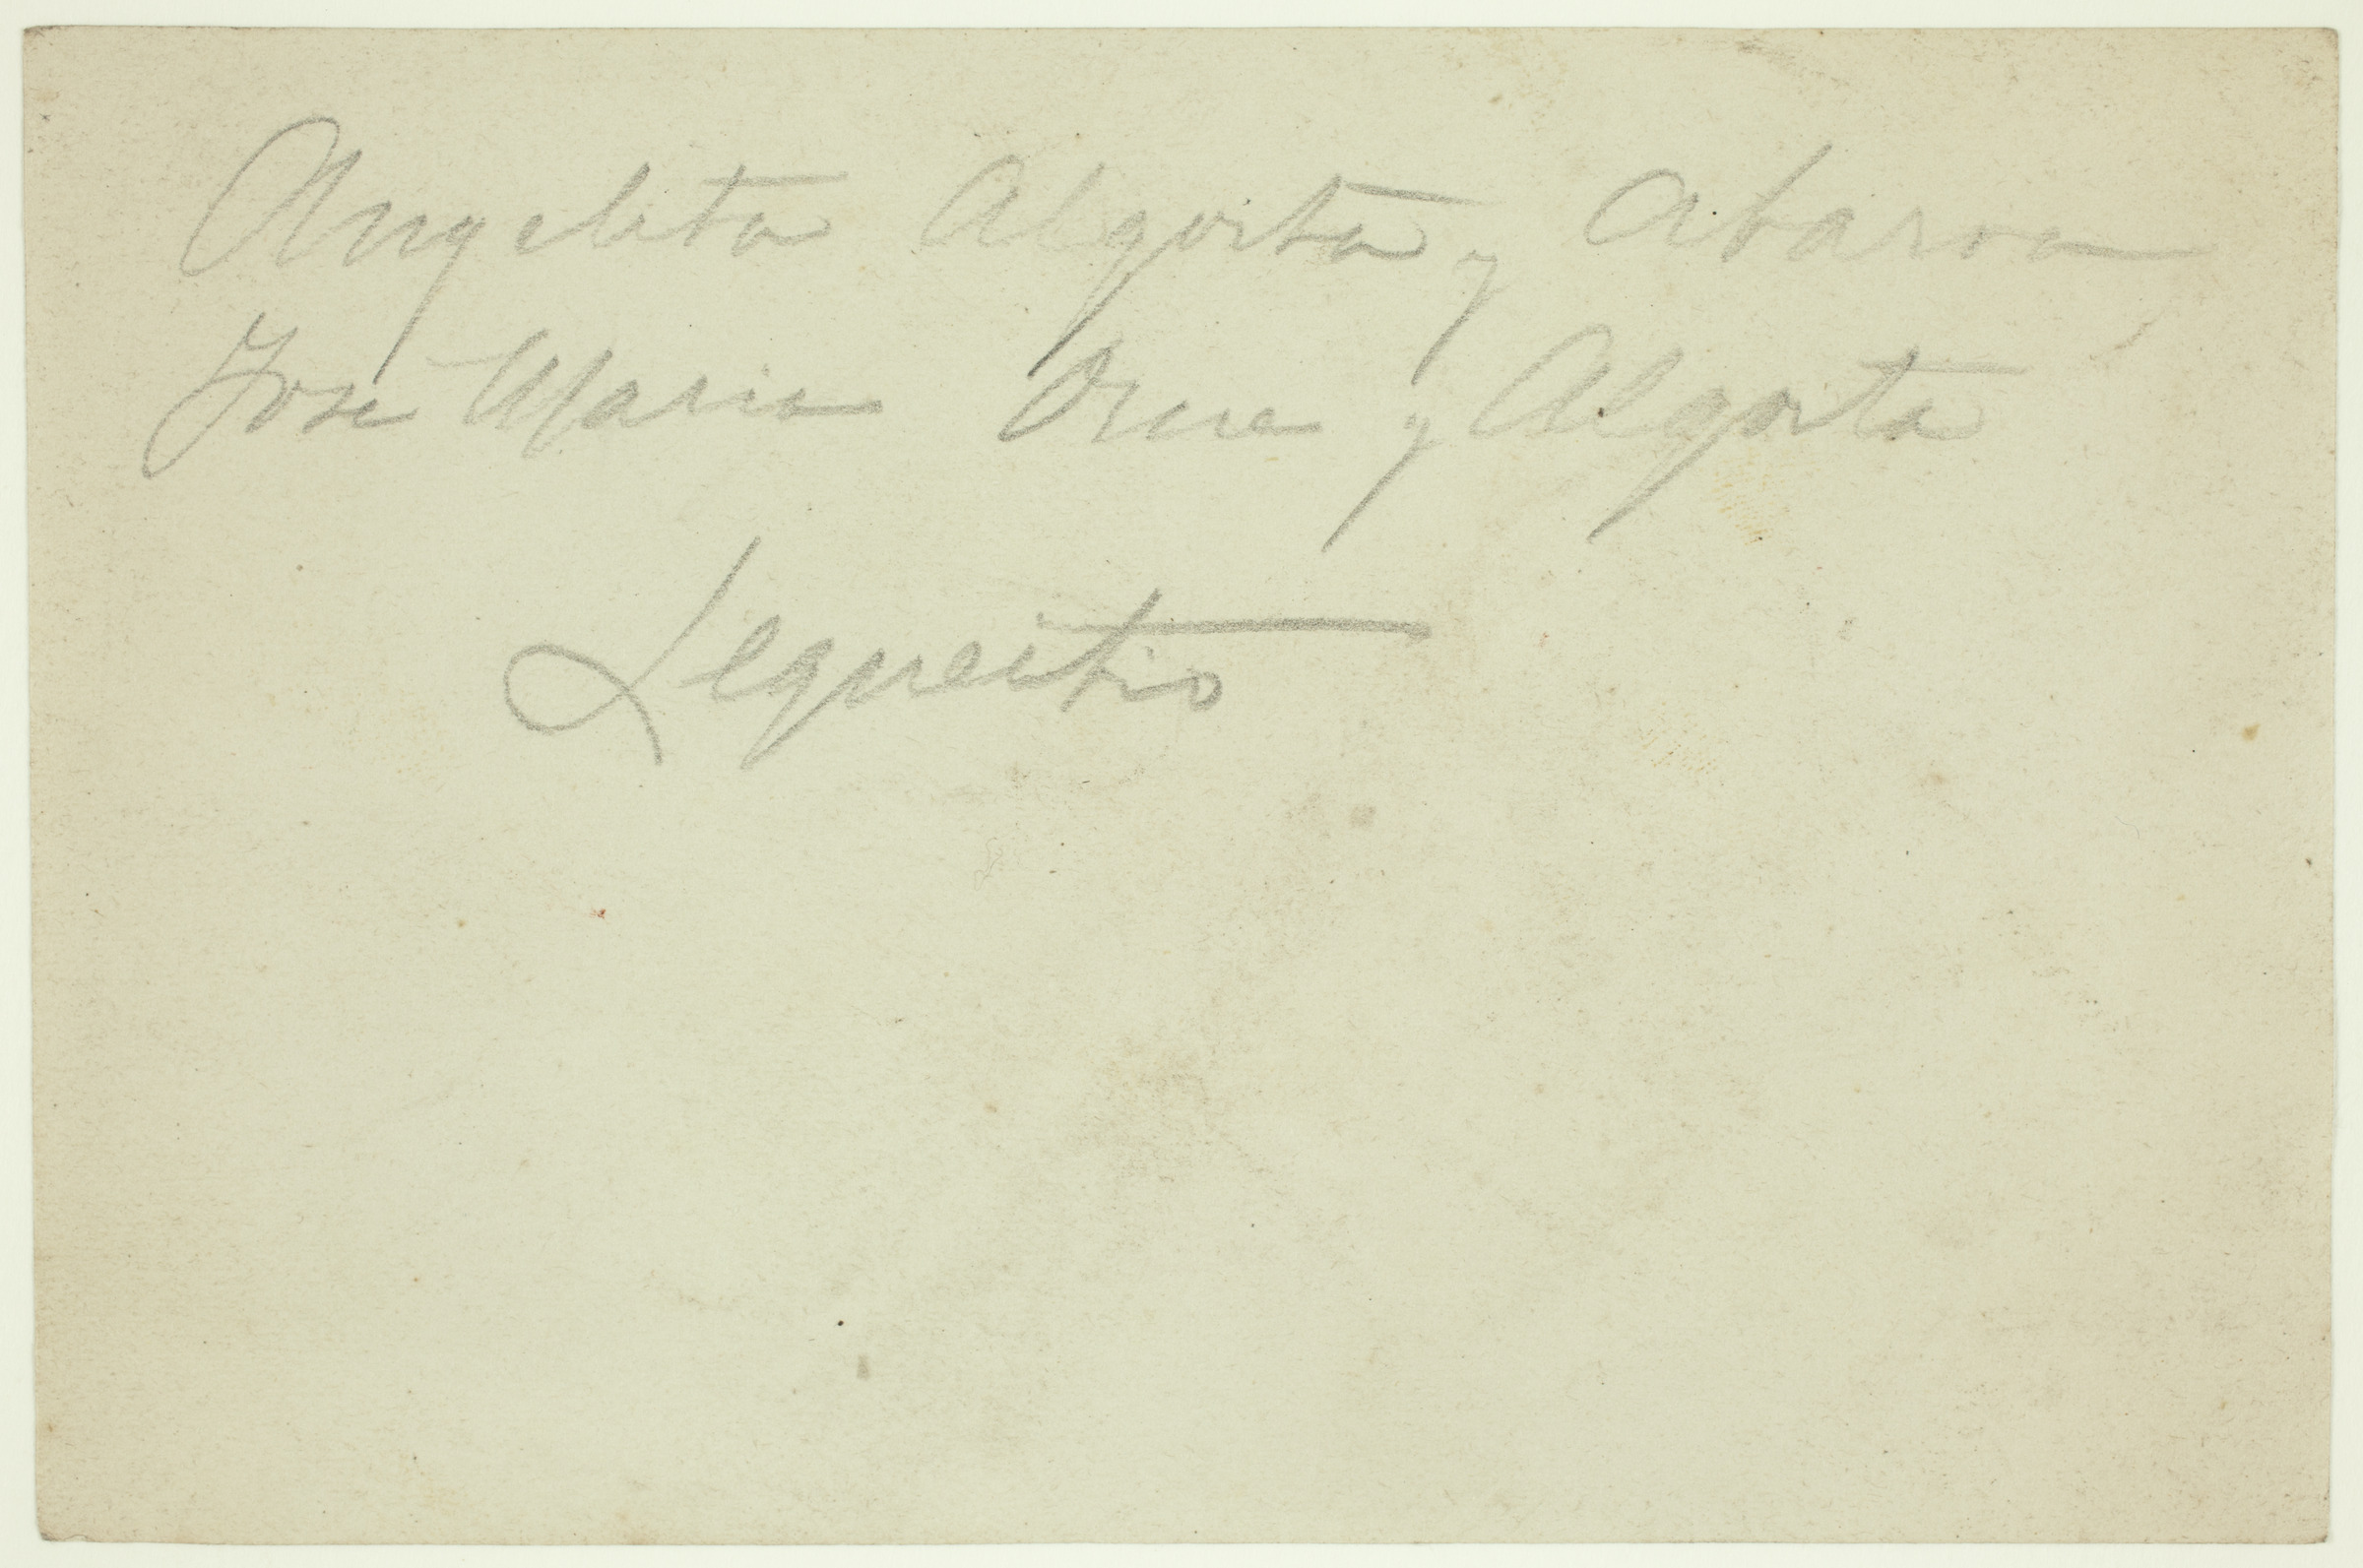 Angelita Algorta y Abaroa
José Maria Orue y Algorta
Lequeitio